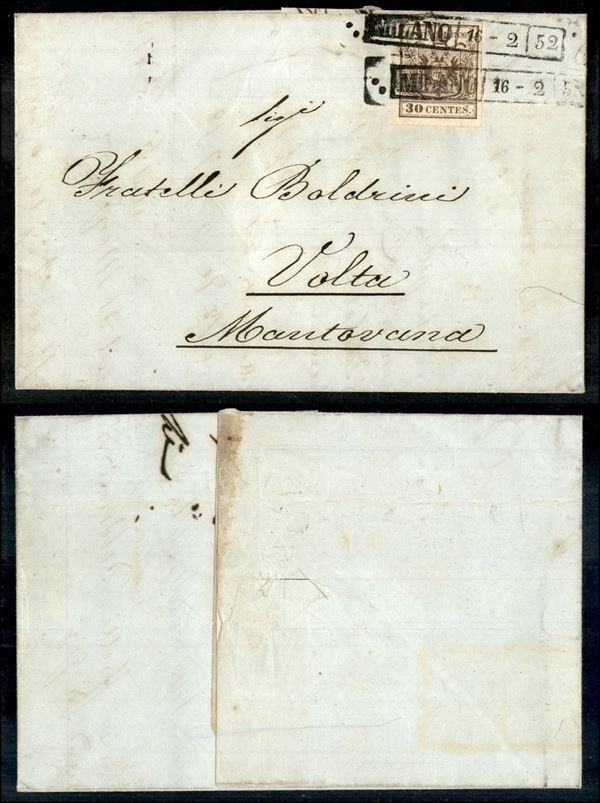 MILANO 16 - 2 52
MILANO 16 - 2 5
30 CENTES.
Sigi
Fratelli Boldrini
Volta
Mantovana